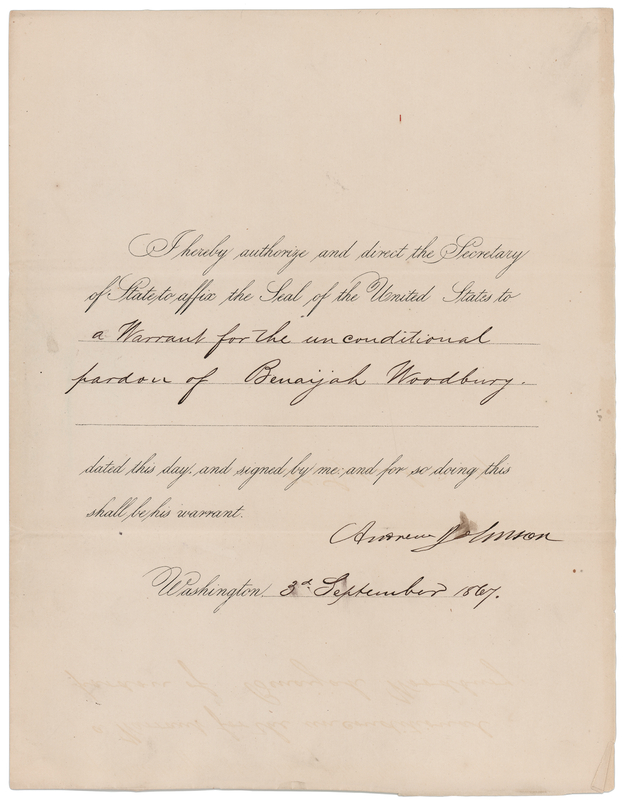 I hereby authorize and direct the Secretary
of State to affix the Seal of the United States to
a Warrant for the unconditional
pardon of Benaijah Woodbury.
dated this day, and signed by me; and for so doing this
shall be his warrant.
Andrew Johnson
Washington, 3d September 1867.